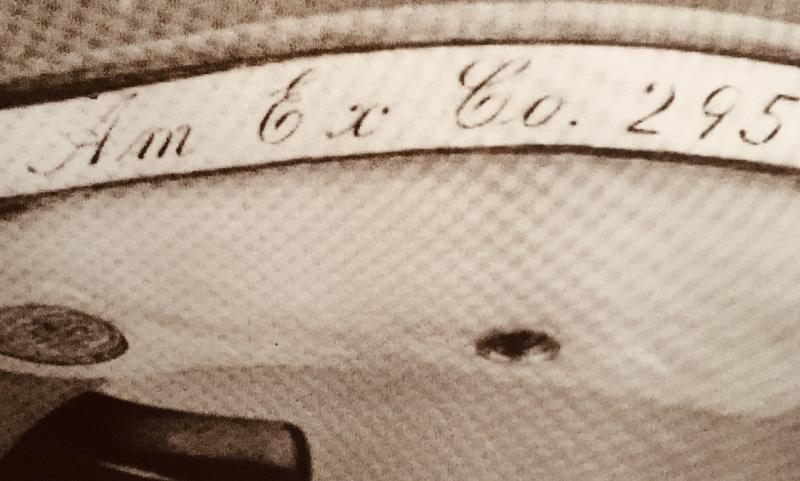 Am Ex Co. 295